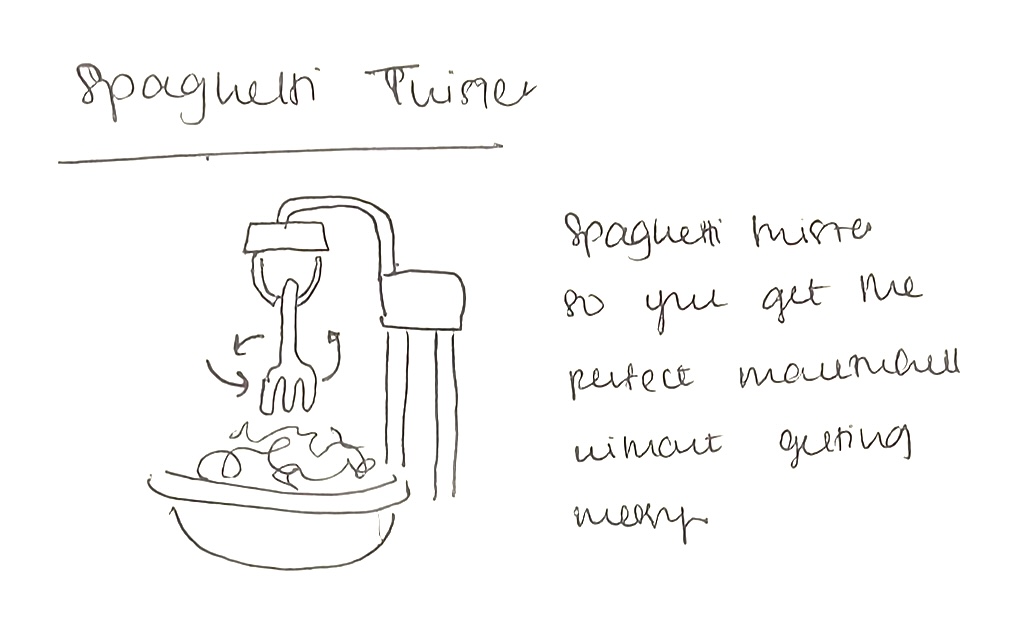 Spaghetti Twister
Spaghetti twister
so you get the
perfect mouthful
without getting
messy